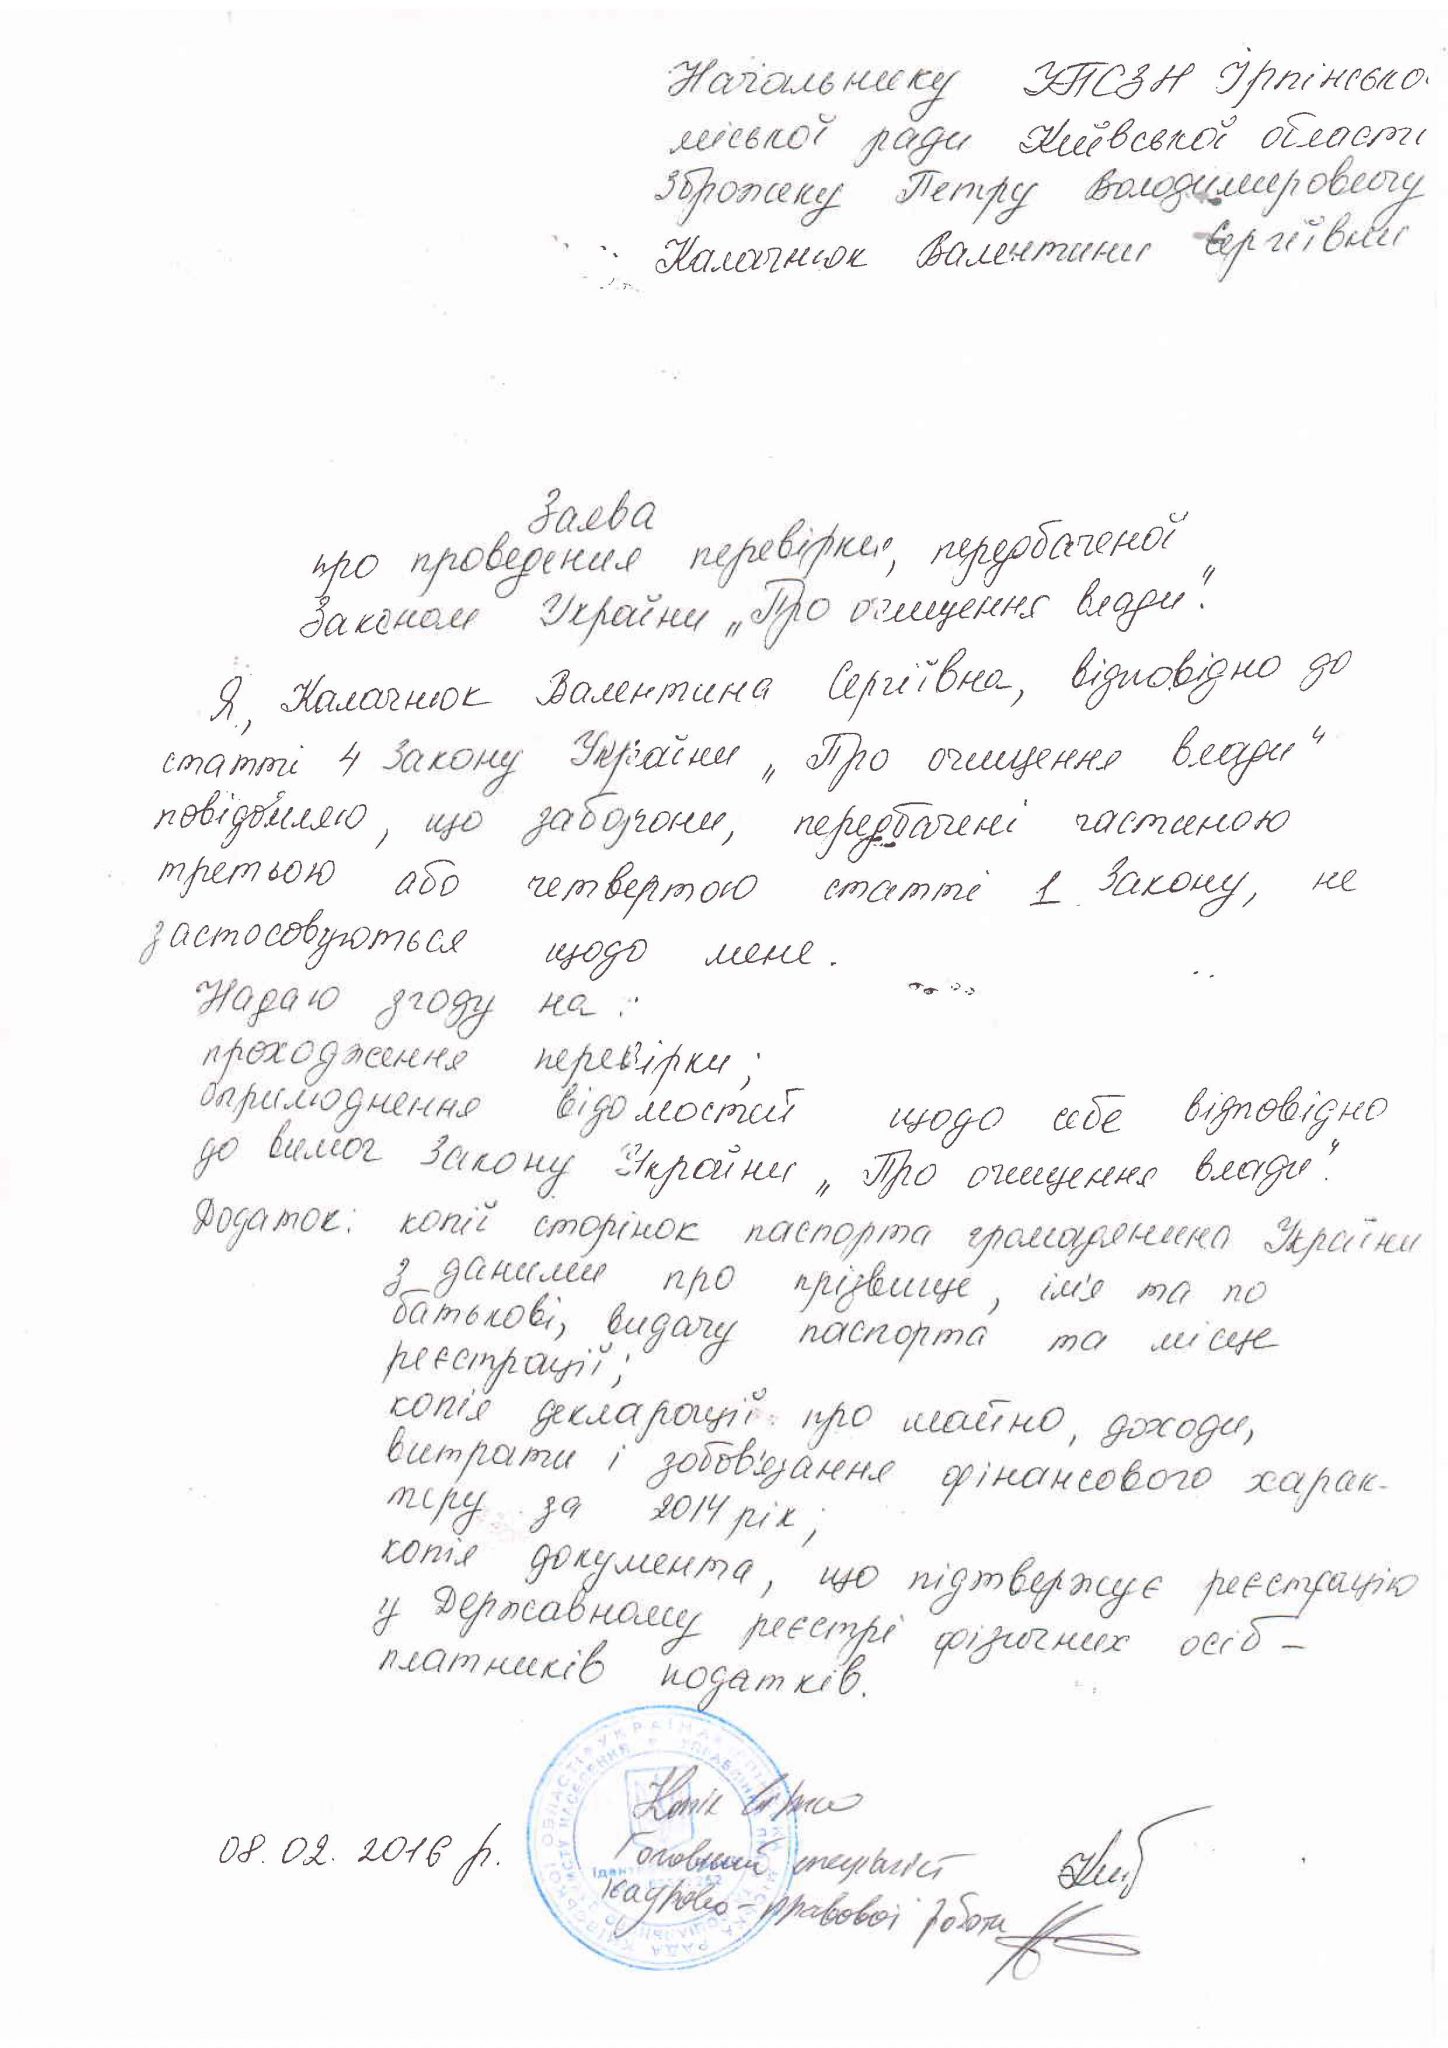 Начальнику УПСЗН Ірпінсько
міської ради Київської області
Зброжеку Петру Володимировичу
Калачнюк Валентини Сергіївни
Заява
про проведення перевірки, передбаченої
Законом України „Про очищення влади".
Я, Калачнюк Валентина Сергіївна, відповідно до
статті 4 Закону України „Про очищення влади"
повідомляю, що заборони, передбачені частиною
третьою або четвертою статті 1 Закону, не
застосовуються щодо мене.
Надаю згоду на:
проходження перевірки;
оприлюднення відомостей щодо себе відповідно
до вимог Закону України „Про очищення влади".
Додаток: копії сторінок паспорта громадянина України
з даними про прізвище, ім'я та по
батькові, видачу паспорта та місце
реєстрації;
копія декларації про майно, доходи,
витрати і зобов'язання фінансового харак-
теру за 2014 рік;
копія документа, що підтверджує реєстрацію
у Державному реєстрі фізичних осіб –
платників податків.
Копія вірна
08.02.2016 р. Головний спеціаліст
кадрово-правової роботи